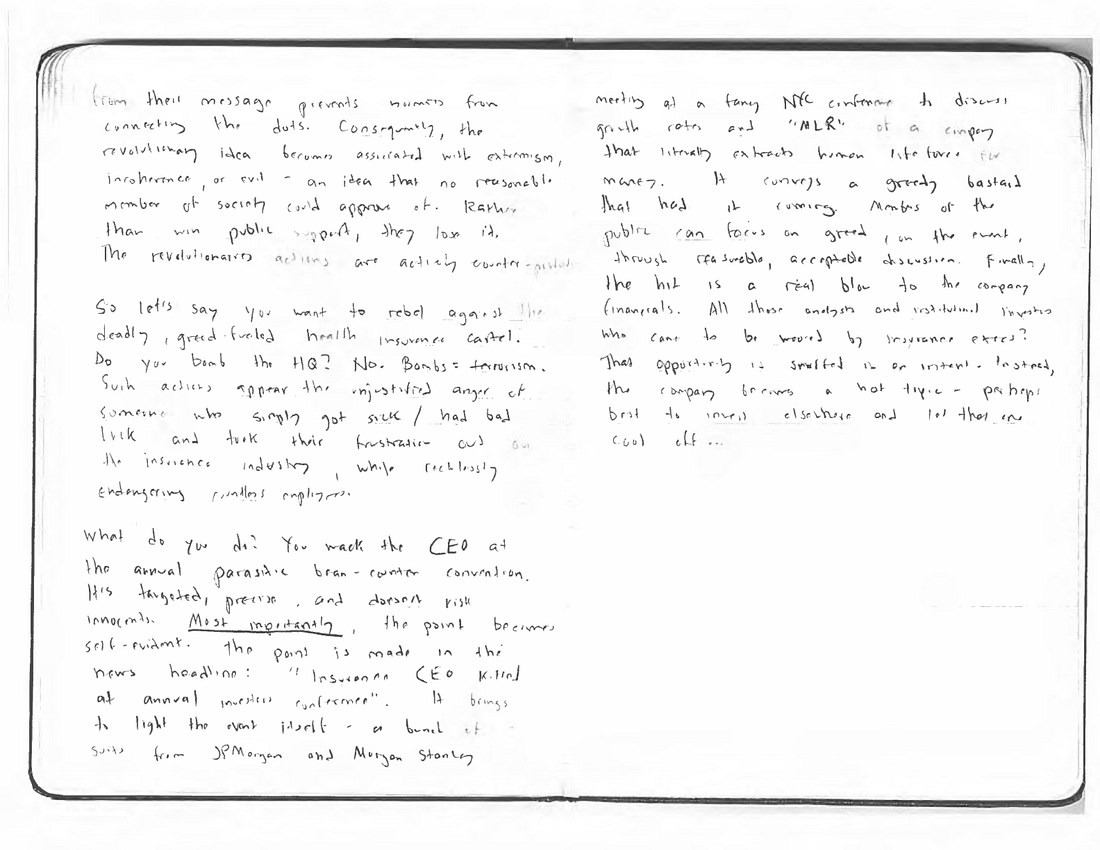 from their message prevents normies from
connecting the dots. Consequently, the
revolutionary idea becomes associated with extremism,
incoherence, or evil - an idea that no reasonable
member of society could approve of. Rather
than win public support, they lose it.
The revolutionaries actions are actively counter-
So let's say you want to rebel against the
deadly, greed-fueled health insurance cartel.
Do you bomb the HQ? No. Bombs = terrorism.
Such actions appear the unjustified anger of
someone who simply got sick / had bad
luck and took their frustration out on
the insurance industry, while recklessly
endangering countless employees.
What do you do? You wack the CEO at
the annual parasitic bean-counter convention.
It's targeted, precise, and doesn't risk
innocents. Most importantly, the point becomes
self-evident. The point is made in the
news headline: "Insurance CEO killed
at annual investors conference". It brings
to light the event itself - a bunch of
suits from JPMorgan and Morgan Stanley
meeting at a fancy NYC conference to discuss
growth rates and "MLR" of a company
that literally extracts human life force for
money. It conveys a greedy bastard
that had it coming. Members of the
public can focus on greed, on the event,
through reasonable, acceptable discussion. Finally,
the hit is a real blow to the company
financials. All those analysts and institutional investors
who came to be wooed by insurance execs?
That opportunity is snuffed in an instant. Instead,
the company becomes a hot topic - perhaps
best to invest elsewhere and let that one
cool off ...